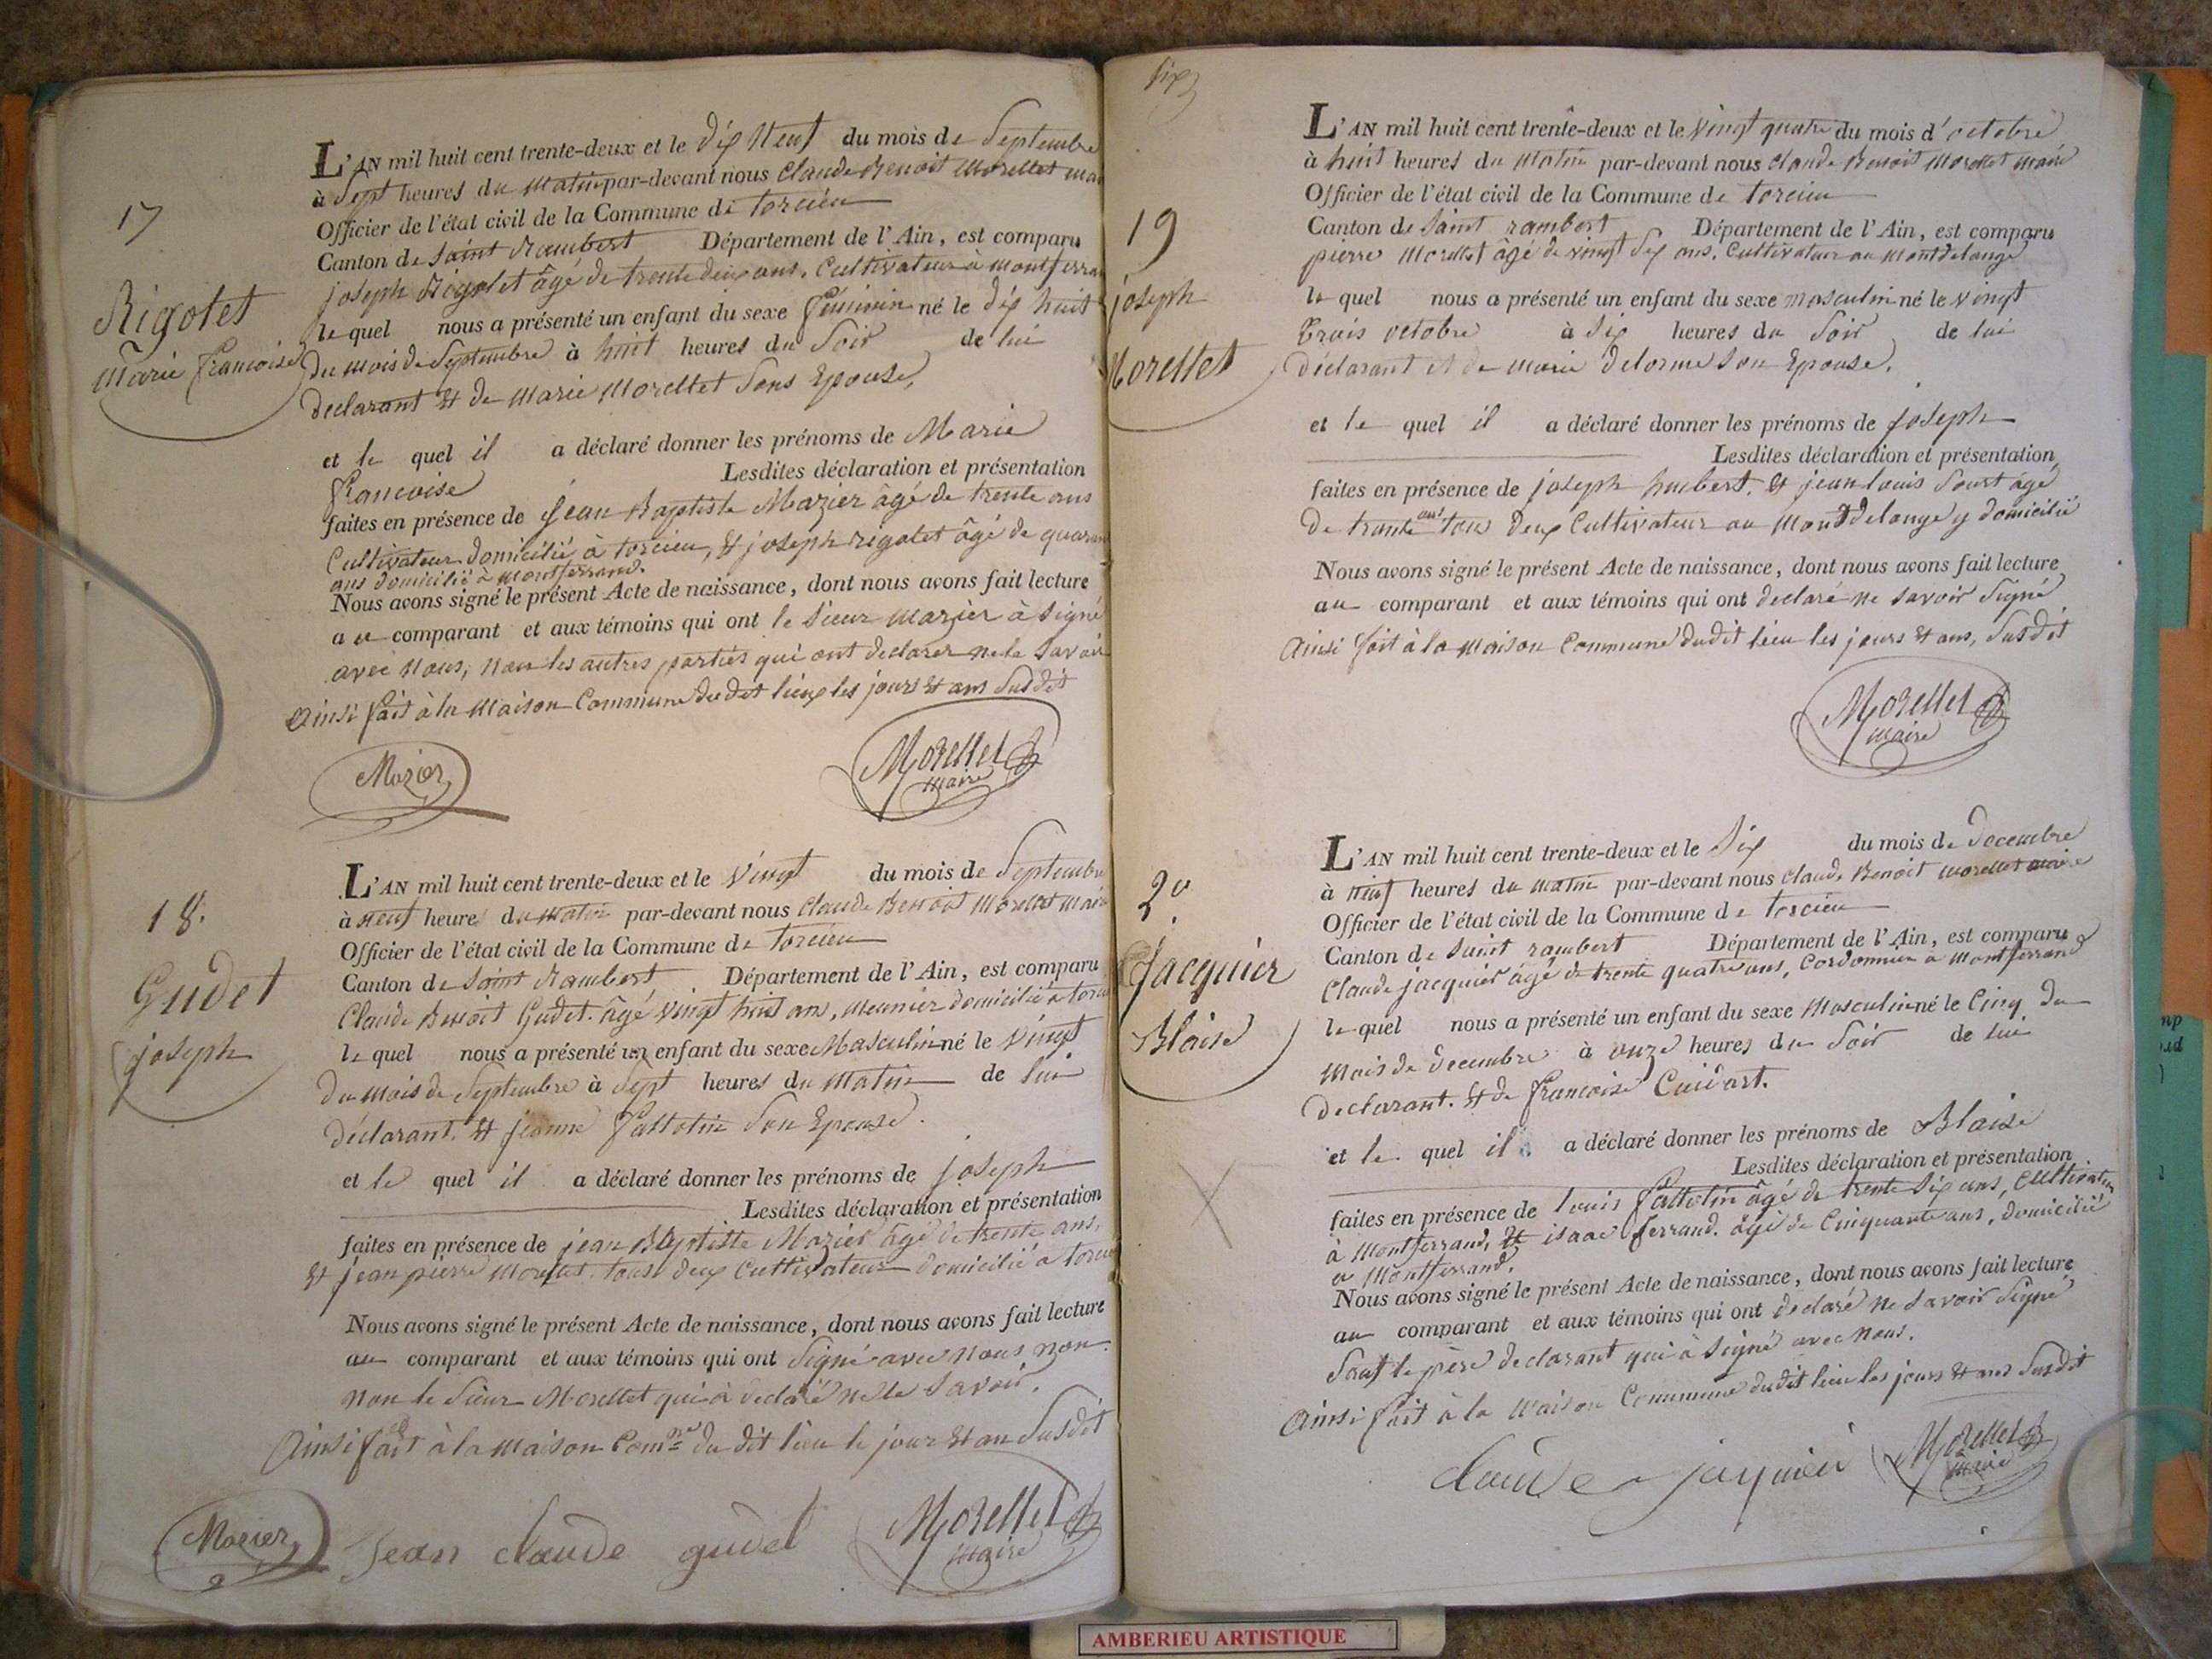 17
Rigotet
Marie francoise
L'AN mil huit cent trente-deux et le dix Neuf du mois de Septembre
à Sept heures du matin par-devant nous Claude Benoit Morellet
Officier de l'état civil de la Commune de torcieu
Canton de Saint Rambert Département de l'Ain, est comparu
joseph Rigotet âgé de trente deux ans. Cultivateur à
le quel nous a présenté un enfant du sexe féminin né le dix huit
du mois de Septembre à huit heures du Soir de lui
declarant et de Marie Morellet Sons Epouse,
et le quel il a déclaré donner les prénoms de Marie
francoise Lesdites déclaration et présentation
faites en présence de jean Baptiste Mazier âgé de trente ans
Cultivateur domicilié à torcieu, et joseph rigotet âgé de
ans domicilié à montferrand.
Nous avons signé le présent Acte de naissance, dont nous avons fait lecture
au comparant et aux témoins qui ont le Sieur mazier à Signé
avec Nous, non les autres parties qui ont declarer ne le Savoir
Ainsi fait à la Maison Commune dudit lieux les jours et ans Susdit
Mazier
Morellet
maire
18.
Gudet
joseph
L'AN mil huit cent trente-deux et le Vingt du mois de Septembre
à Neuf heures du matin par-devant nous Claude Benoit Morellet Maire
Officier de l'état civil de la Commune de torcieu
Canton de Saint Rambert Département de l'Ain, est comparu
Claude Benoit Gudet. âgé vingt huit ans, meunier domicilié à
le quel nous a présenté un enfant du sexe Masculin né le Vingt
du mois de Septembre à Sept heures du Matin de lui
déclarant. et jeanne fattotin Son Epouse.
et le quel il a déclaré donner les prénoms de joseph
Lesdites déclaration et présentation
faites en présence de jean Baptiste Mazier âgé de trente ans,
et jean pierre Morellet. tous deux Cultivateur domicilié à
Nous avons signé le présent Acte de naissance, dont nous avons fait lecture
au comparant et aux témoins qui ont Signé avec Nous non
non le Sieur Morellet qui à déclaré ne le Savoir.
Ainsi fait à la Maison Comne du dit lieu le jour et an Susdit
Mazier
Jean claude gudet
Morellet
maire
six
19
joseph
Morellet
L'AN mil huit cent trente-deux et le Vingt quatre du mois d'octobre
à huit heures du matin par-devant nous claude Benoit Morellet maire
Officier de l'état civil de la Commune de torcieu
Canton de Saint rambert Département de l'Ain, est comparu
pierre Morellet âgé de vingt Six ans. Cultivateur au Montdelange
le quel nous a présenté un enfant du sexe masculin né le vingt
trois octobre à Six heures du Soir de lui
déclarant et de marie delorme Son Epouse.
et le quel il a déclaré donner les prénoms de joseph
Lesdites déclaration et présentation
faites en présence de joseph humbert. et jean louis âgé
de trente ans tous deux Cultivateur au Montdelange y domicilié
Nous avons signé le présent Acte de naissance, dont nous avons fait lecture
au comparant et aux témoins qui ont declaré ne Savoir Signé
Ainsi fait à la Maison Commune dudit lieu les jours et ans, Susdit
Morellet
maire
20
Jacquier
Blaise
L'AN mil huit cent trente-deux et le Six du mois de decembre
à neuf heures du matin par-devant nous claude Benoit morellet maire
Officier de l'état civil de la Commune de torcieu
Canton de Saint rambert Département de l'Ain, est comparu
Claude jacquier âgé de trente quatre ans, Cordonnier à montferrand
le quel nous a présenté un enfant du sexe Masculin né le Cinq du
mois de decembre à onze heures du Soir de lui
declarant. et de francoise Cuidart.
et le quel il a déclaré donner les prénoms de Blaise
Lesdites déclaration et présentation
faites en présence de louis fattotin âgé de trente Six ans, Cultivateur
à Montferrand, et isaac ferrand. âgé de Cinquante ans, domicilié
à Montferrand.
Nous avons signé le présent Acte de naissance, dont nous avons fait lecture
au comparant et aux témoins qui ont declaré ne Savoir Signé
Sauf le père declarant qui à Signé avec Nous.
Ainsi fait à la Maison Commune dudit lieu les jours et ans Susdit
claude jaquier
Morellet
maire
AMBERIEU ARTISTIQUE